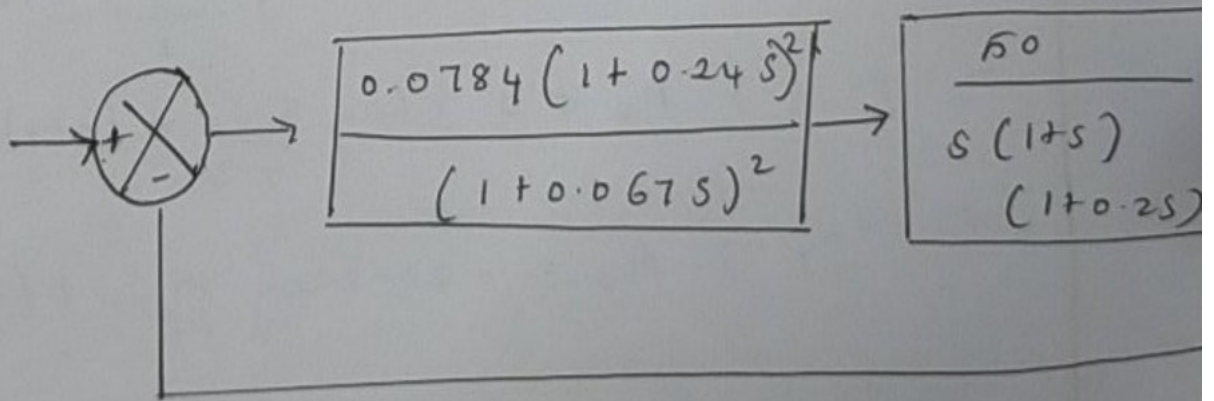 +
-
0.0784 (1 + 0.24 S)²
(1 + 0.067 S)²
50
S (1+S)
(1+0.2S)